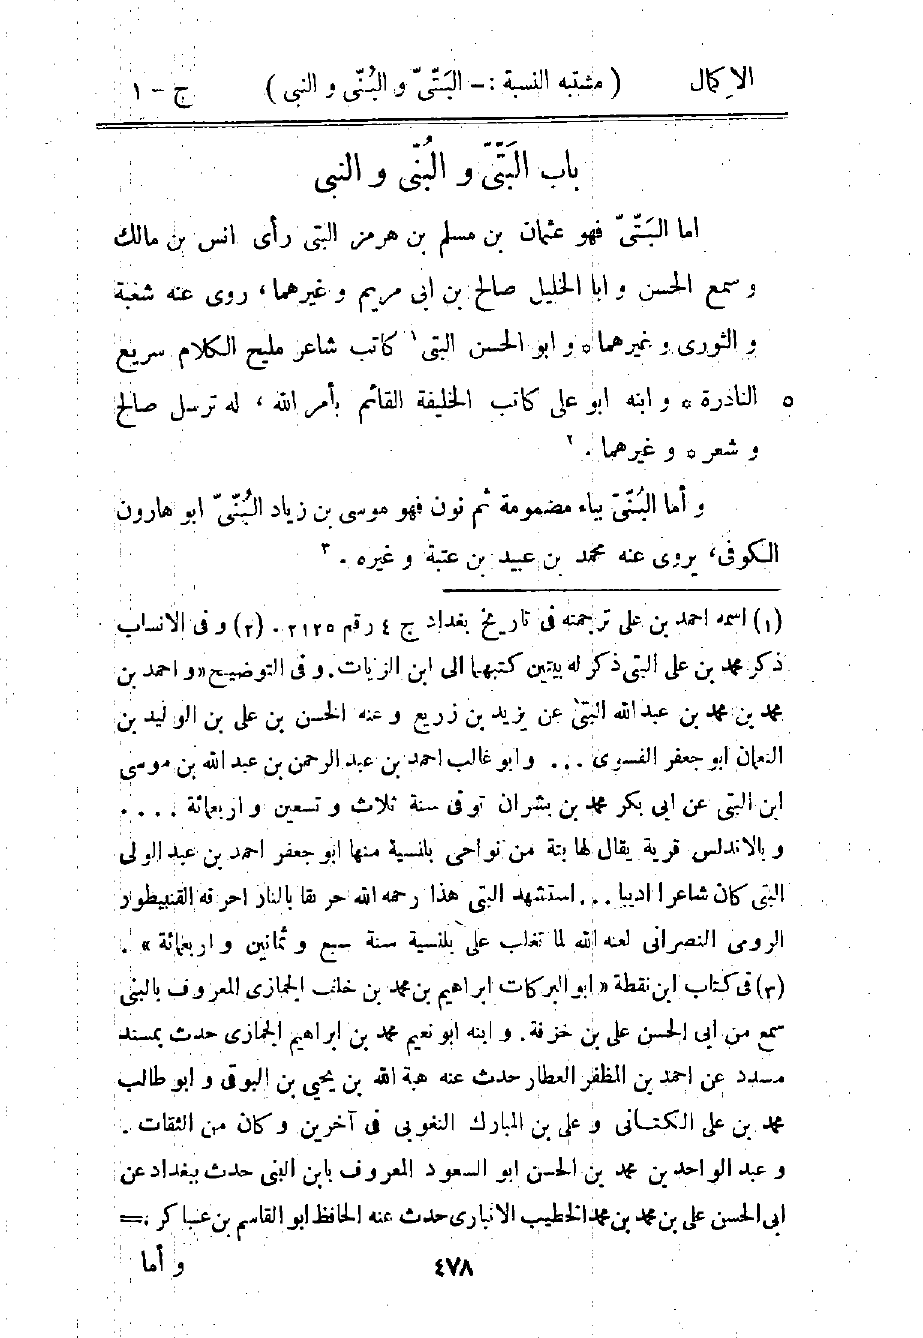 الإكمال ( مشتبه النسبة :- البَتِّيّ و البُنِّي و النبي ) ج - ١
باب البَتِّيّ و البُنِّي و النبي
اما البَتِّيّ فهو عثمان بن مسلم بن هرمز البتى رأى انس بن مالك
و سمع الحسن و ابا الخليل صالح بن ابى مريم و غيرهما، روى عنه شعبة
و الثورى و غيرهما ه و ابو الحسن البتى ١ كاتب شاعر مليح الكلام سريع
النادرة ه و ابنه ابو على كاتب الخليفة القائم بأمر الله ، له ترسل صالح ٥
و شعر ه و غيرهما . ٢
و أما البُنِّيّ بباء مضمومة ثم نون فهو موسى بن زياد البُنِّيّ ابو هارون
الكوفى، يروى عنه محمد بن عبيد بن عتبة و غيره . ٣
(١) اسمه احمد بن على ترجمته فى تاريخ بغداد ج ٤ رقم ٢١٢٥ . (٢) و فى الانساب
ذكر محمد بن على البتى ذكر له بيتين كتبهما الى ابن الزيات. و فى التوضيح «و احمد بن
محمد بن محمد بن عبد الله البتى عن يزيد بن زريع و عنه الحسن بن على بن الوليد بن
النعمان ابو جعفر الفسوى ... و ابو غالب احمد بن عبد الرحمن بن عبد الله بن موسى
ابن البتى عن ابى بكر محمد بن بشران توفى سنة ثلاث و تسعين و اربعمائة ....
و بالاندلس قرية يقال لها بتة من نواحى بلنسية منها ابو جعفر احمد بن عبد الولى
البتى كان شاعرا اديبا ... استشهد البتى هذا رحمه الله حرقا بالنار احرقه القنبيطور
الرومى النصرانى لعنه الله لما تغلب على بلنسية سنة سبع و ثمانين و اربعمائة » .
(٣) فى كتاب ابن نقطة « ابو البركات ابراهيم بن محمد بن خلف الجمازى المعروف بالبنى
سمع من ابى الحسن على بن خزفة. و ابنه ابو نعيم محمد بن ابراهيم الجمازى حدث بمسند
مسدد عن احمد بن المظفر العطار حدث عنه هبة الله بن يحيى بن البوقى و ابو طالب
محمد بن على الكتانى و على بن المبارك النغوبى فى آخرين و كان من الثقات .
و عبد الواحد بن محمد بن الحسن ابو السعود المعروف بابن البنى حدث ببغداد عن
ابى الحسن على بن محمد بن محمد الخطيب الانبارى حدث عنه الحافظ ابو القاسم بن عساكر ؛=
٤٧٨ و أما